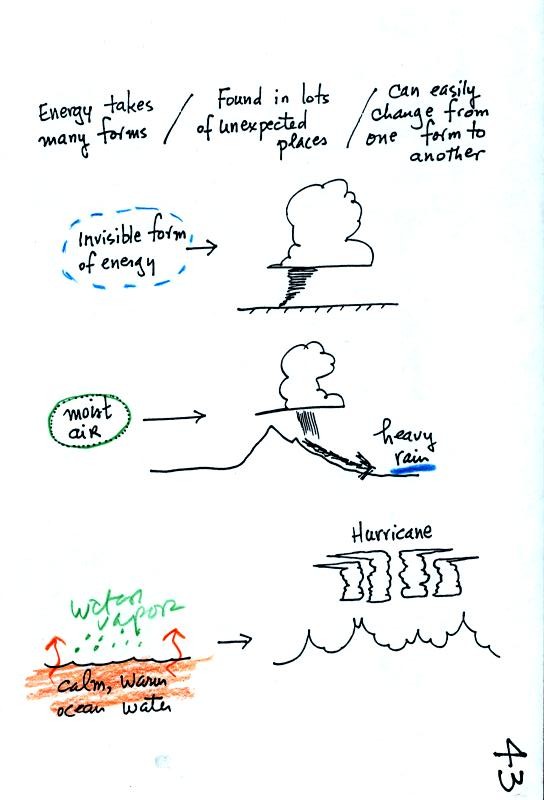 Energy takes
many forms
/
Found in lots
of unexpected
places
/
can easily
change from
one form to
another
Invisible form
of energy
moist
air
heavy
rain
Hurricane
water
vapor
calm, warm
ocean water
43